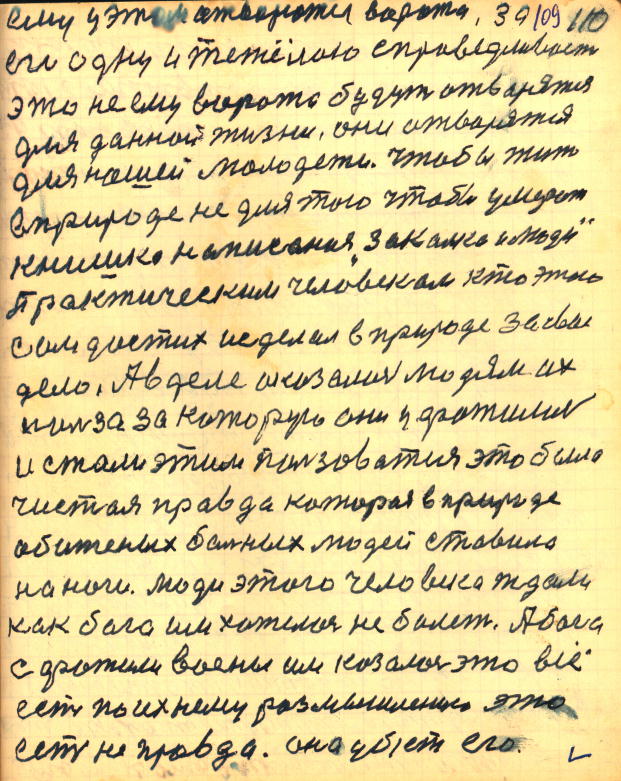 ему у этом отворожи ворота, 39/09 110
его одну и тежёлою справедливост
это не ему ворота будут отварятся
для данной жизни, они отварятся
для нашей молодежи. Чтобы жит
в природе не для того чтобы умерат
книшка написаная „Закалка и люди"
Практическим человеком кто этого
сам достих и сделал в природе за свое
дело, А в деле оказалос людям их
полза за которую они удржилис
и стали этим ползоватся это была
чистая правда которая в природе
обиженых болных людей ставила
на ноги. люди этого человека ждали
как бога им хотелос не болет. А бога
с држили воены им козалос это всё
ест по ихнему размышлению это
ест не правда. она убёт его.